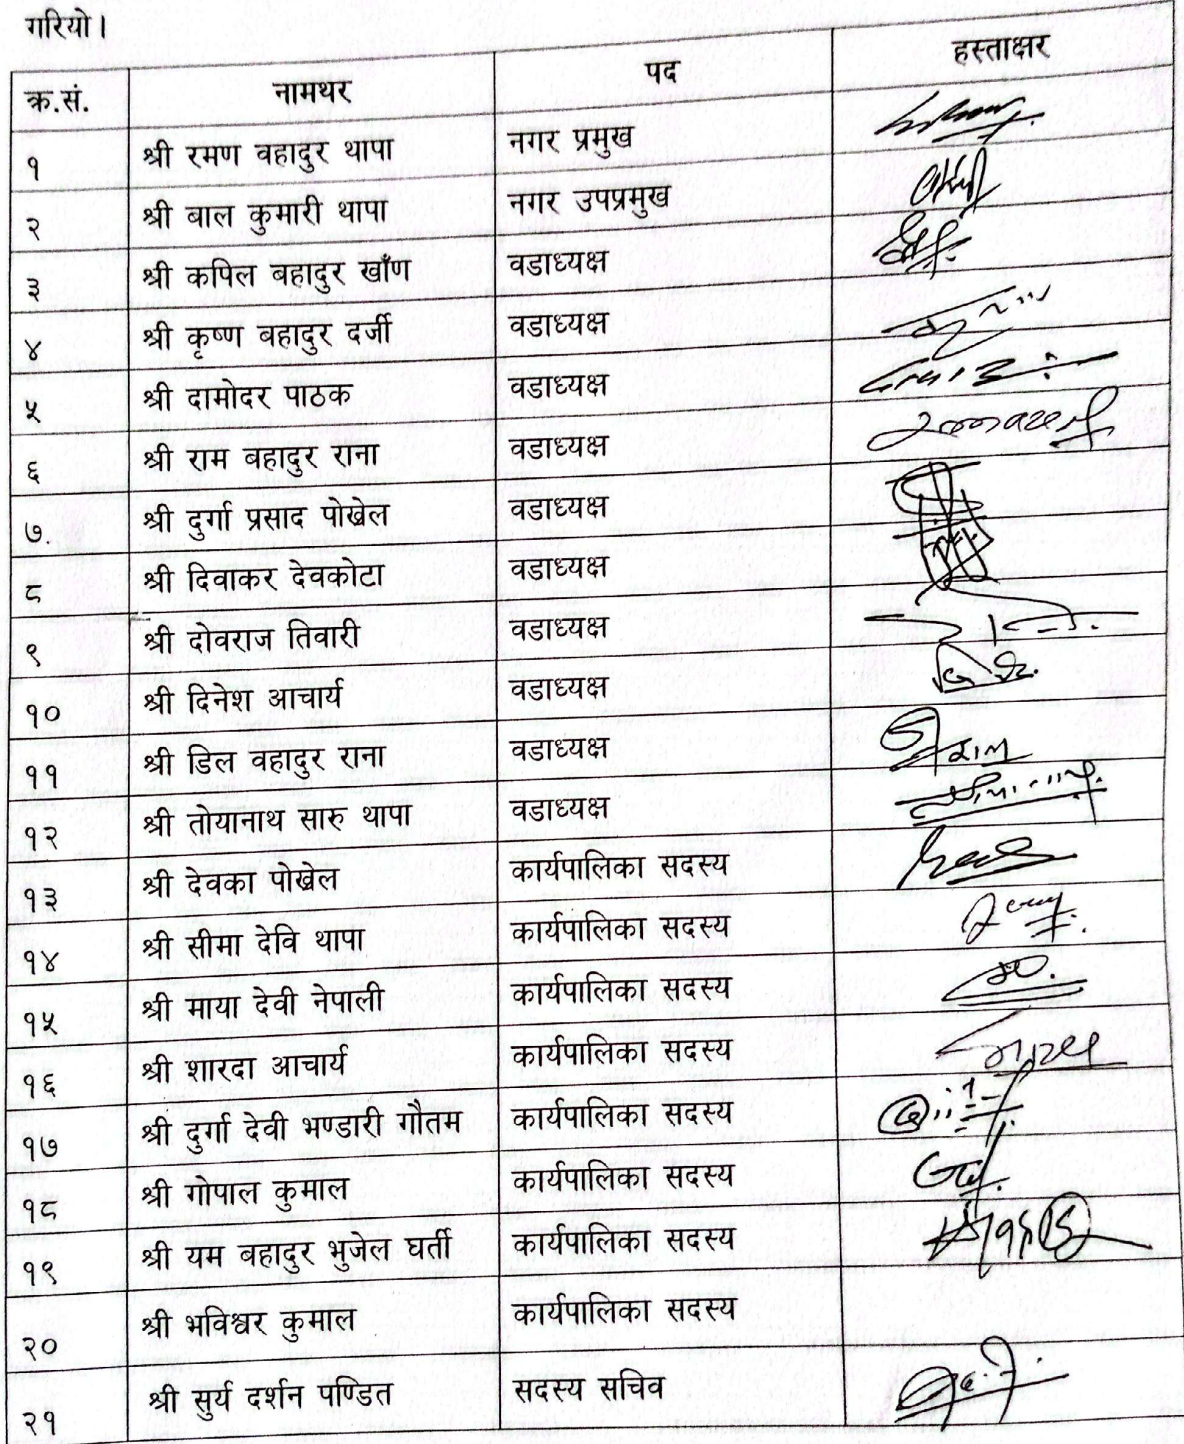 गरियो।
क्र.सं. नामथर पद हस्ताक्षर
१ श्री रमण वहादुर थापा नगर प्रमुख
२ श्री बाल कुमारी थापा नगर उपप्रमुख
३ श्री कपिल बहादुर खाँण वडाध्यक्ष
४ श्री कृष्ण बहादुर दर्जी वडाध्यक्ष
५ श्री दामोदर पाठक वडाध्यक्ष
६ श्री राम बहादुर राना वडाध्यक्ष
७. श्री दुर्गा प्रसाद पोखेल वडाध्यक्ष
८ श्री दिवाकर देवकोटा वडाध्यक्ष
९ श्री दोवराज तिवारी वडाध्यक्ष
१० श्री दिनेश आचार्य वडाध्यक्ष
११ श्री डिल वहादुर राना वडाध्यक्ष
१२ श्री तोयानाथ सारु थापा वडाध्यक्ष
१३ श्री देवका पोखेल कार्यपालिका सदस्य
१४ श्री सीमा देवि थापा कार्यपालिका सदस्य
१५ श्री माया देवी नेपाली कार्यपालिका सदस्य
१६ श्री शारदा आचार्य कार्यपालिका सदस्य
१७ श्री दुर्गा देवी भण्डारी गौतम कार्यपालिका सदस्य
१८ श्री गोपाल कुमाल कार्यपालिका सदस्य
१९ श्री यम बहादुर भुजेल घर्ती कार्यपालिका सदस्य
२० श्री भविश्वर कुमाल कार्यपालिका सदस्य
२१ श्री सुर्य दर्शन पण्डित सदस्य सचिव